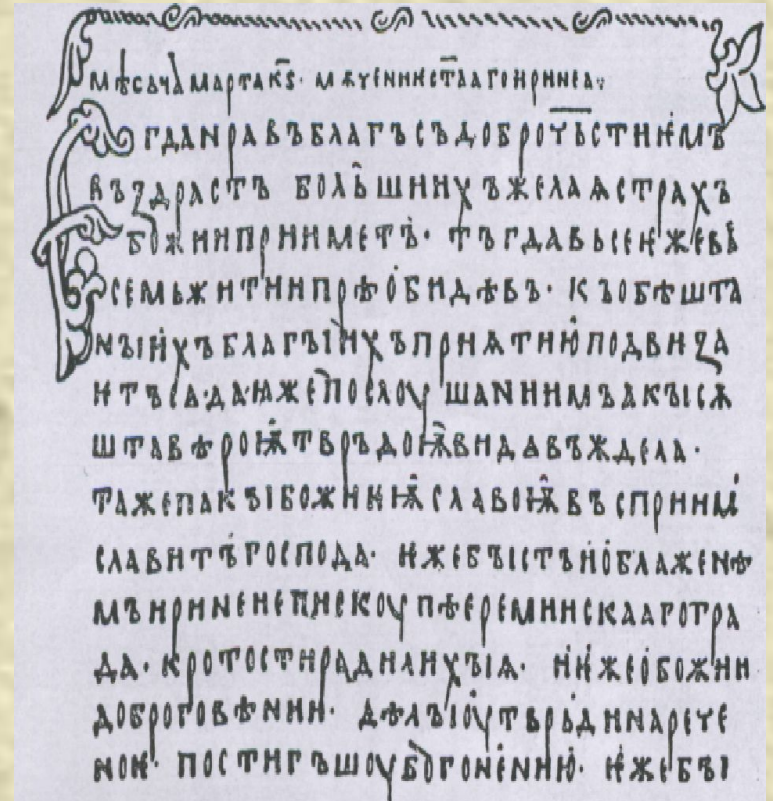 мѣсѧца марта к҃ѕ· мѫчениѥ ст҃ааго иринеа·
Ѥгда нравъ благъ съ доброчьстиимь
въздрастъ большиихъ желаѧ страхъ
божии прииметъ· тъгда вьсе и же вь
семь житии прѣобидѣвъ· къ обѣшта
ныихъ благыихъ приѧтию подвиза
ѥтъ сѧ· да ꙗже послоушаниимь акы сѫ
шта вѣроѭ тврьдоѭ видѣвъ ждела·
таже пакы божиѥѭ славоѭ въсприимъ
славитъ господа· ѥже быстъ и о блаженѣ
мь иринеи епискоупѣ срѣмиискааго гра
да· кротости ради лихыѧ· и ѥже о божии
доброговѣнии· дѣлы оутврьди нарече
ноѥ· постигъшоу бо гонению· ѥже бы